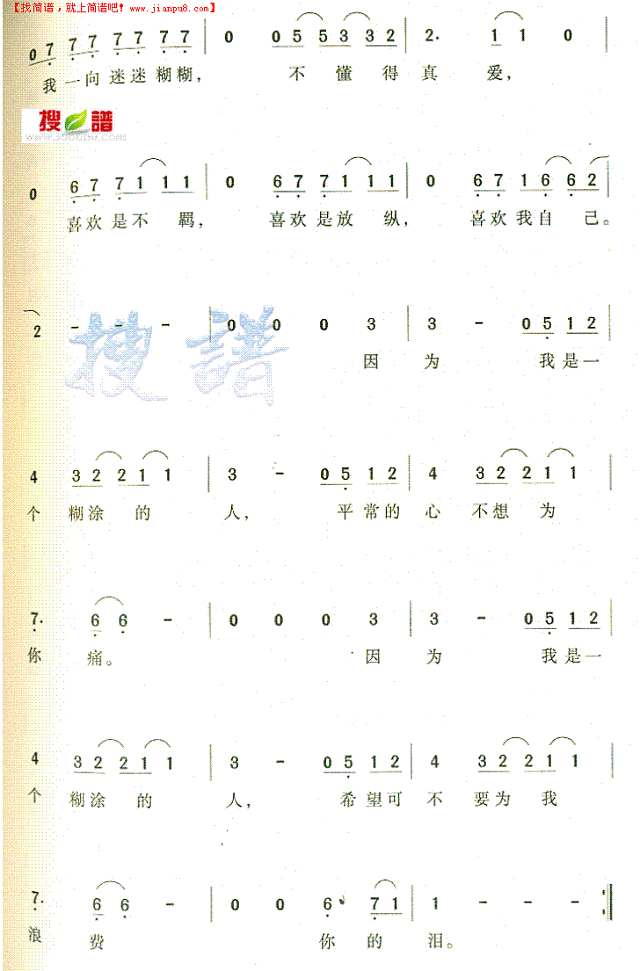 【找简谱，就上简谱吧！www.jianpu8.com】
0 7 7 7 7 7 7 7 | 0 0 5 5 3 3 2 | 2. 1 1 0
我一向迷迷糊糊， 不懂得真爱，
搜谱
0 6 7 7 1 1 1 | 0 6 7 7 1 1 1 | 0 6 7 1 6 6 2
喜欢是不羁， 喜欢是放纵， 喜欢我自己。
2 - - - | 0 0 0 3 | 3 - 0 5 1 2
搜谱
因为 我是一
4 3 2 2 1 1 | 3 - 0 5 1 2 | 4 3 2 2 1 1
个糊涂的人， 平常的心不想为
7. 6 6 - | 0 0 0 3 | 3 - 0 5 1 2
你痛。 因为 我是一
4 3 2 2 1 1 | 3 - 0 5 1 2 | 4 3 2 2 1 1
个糊涂的人， 希望可不要为我
7. 6 6 - | 0 0 6 7 1 | 6 - - - :|
浪费 你的泪。